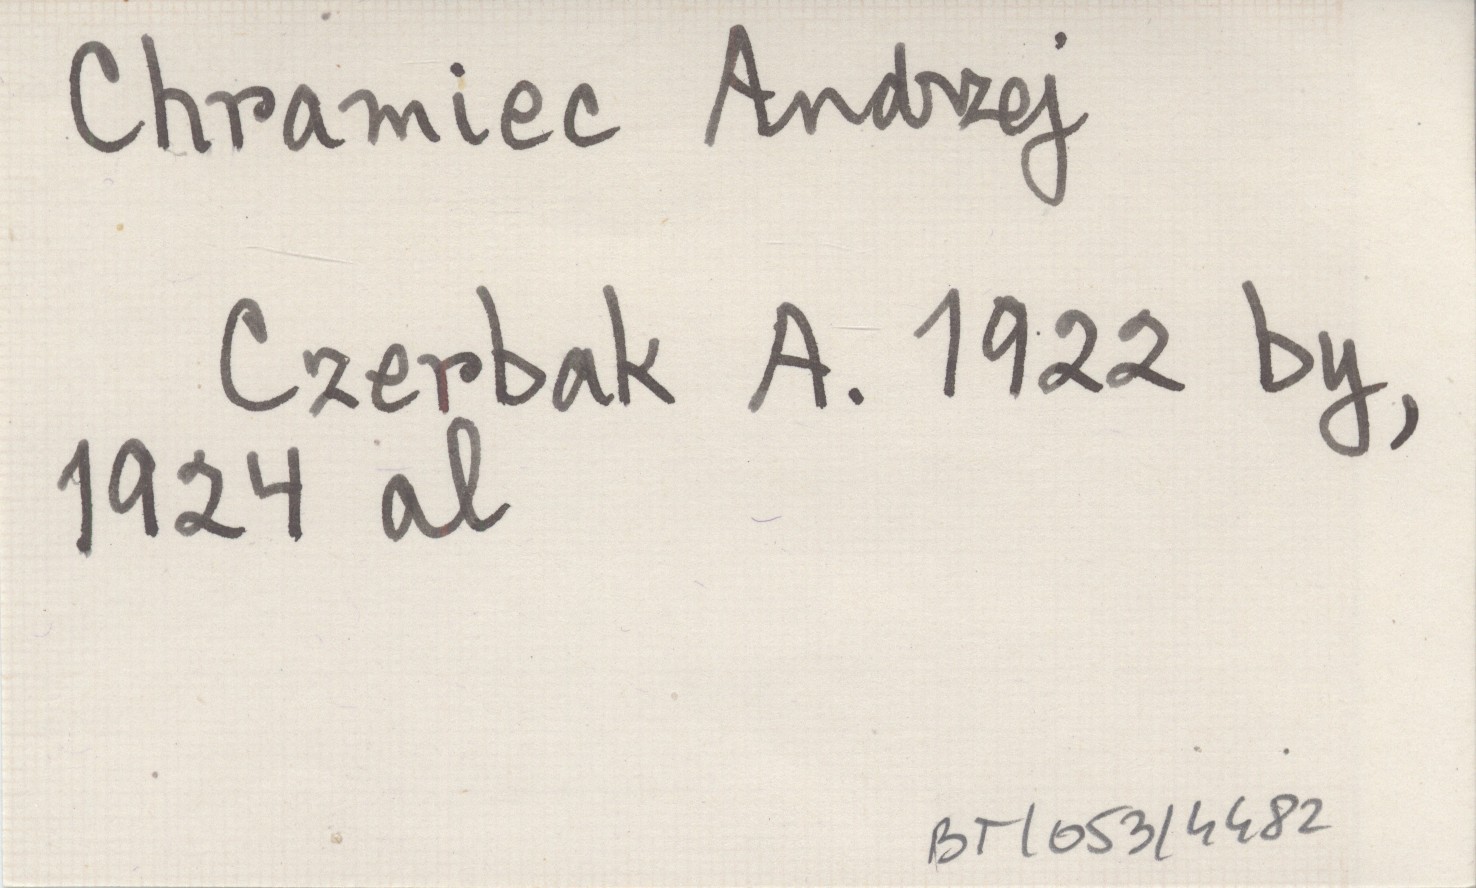 Chramiec Andrzej
Czerbak A. 1922 by,
1924 al
BT/053/4482